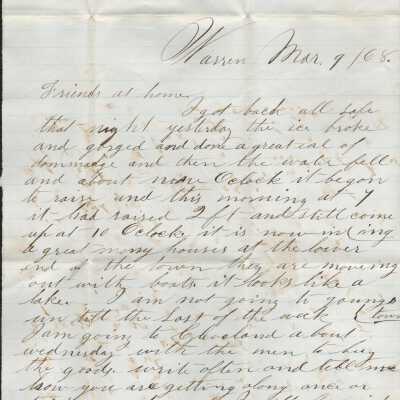 Warren Mar. 9 /68.
Friends at home
I got back all safe
that night yesterday the ice broke
and gorged and done a great eal of
dommadge and then the water fell
and about nine Oclock it began
to raise and this morning at 7
it had raised 2 ft and still come
up at 10 Oclock, it is now in (ing
a great many houses at the lower
end of the town they are moveing
out with boats it looks like a
lake. I am not going to youngs
un till the Last of the week (town
I am going to Cleveland about
wednesday with the men to buy
the goods. write often and tell me
how you are getting along once or